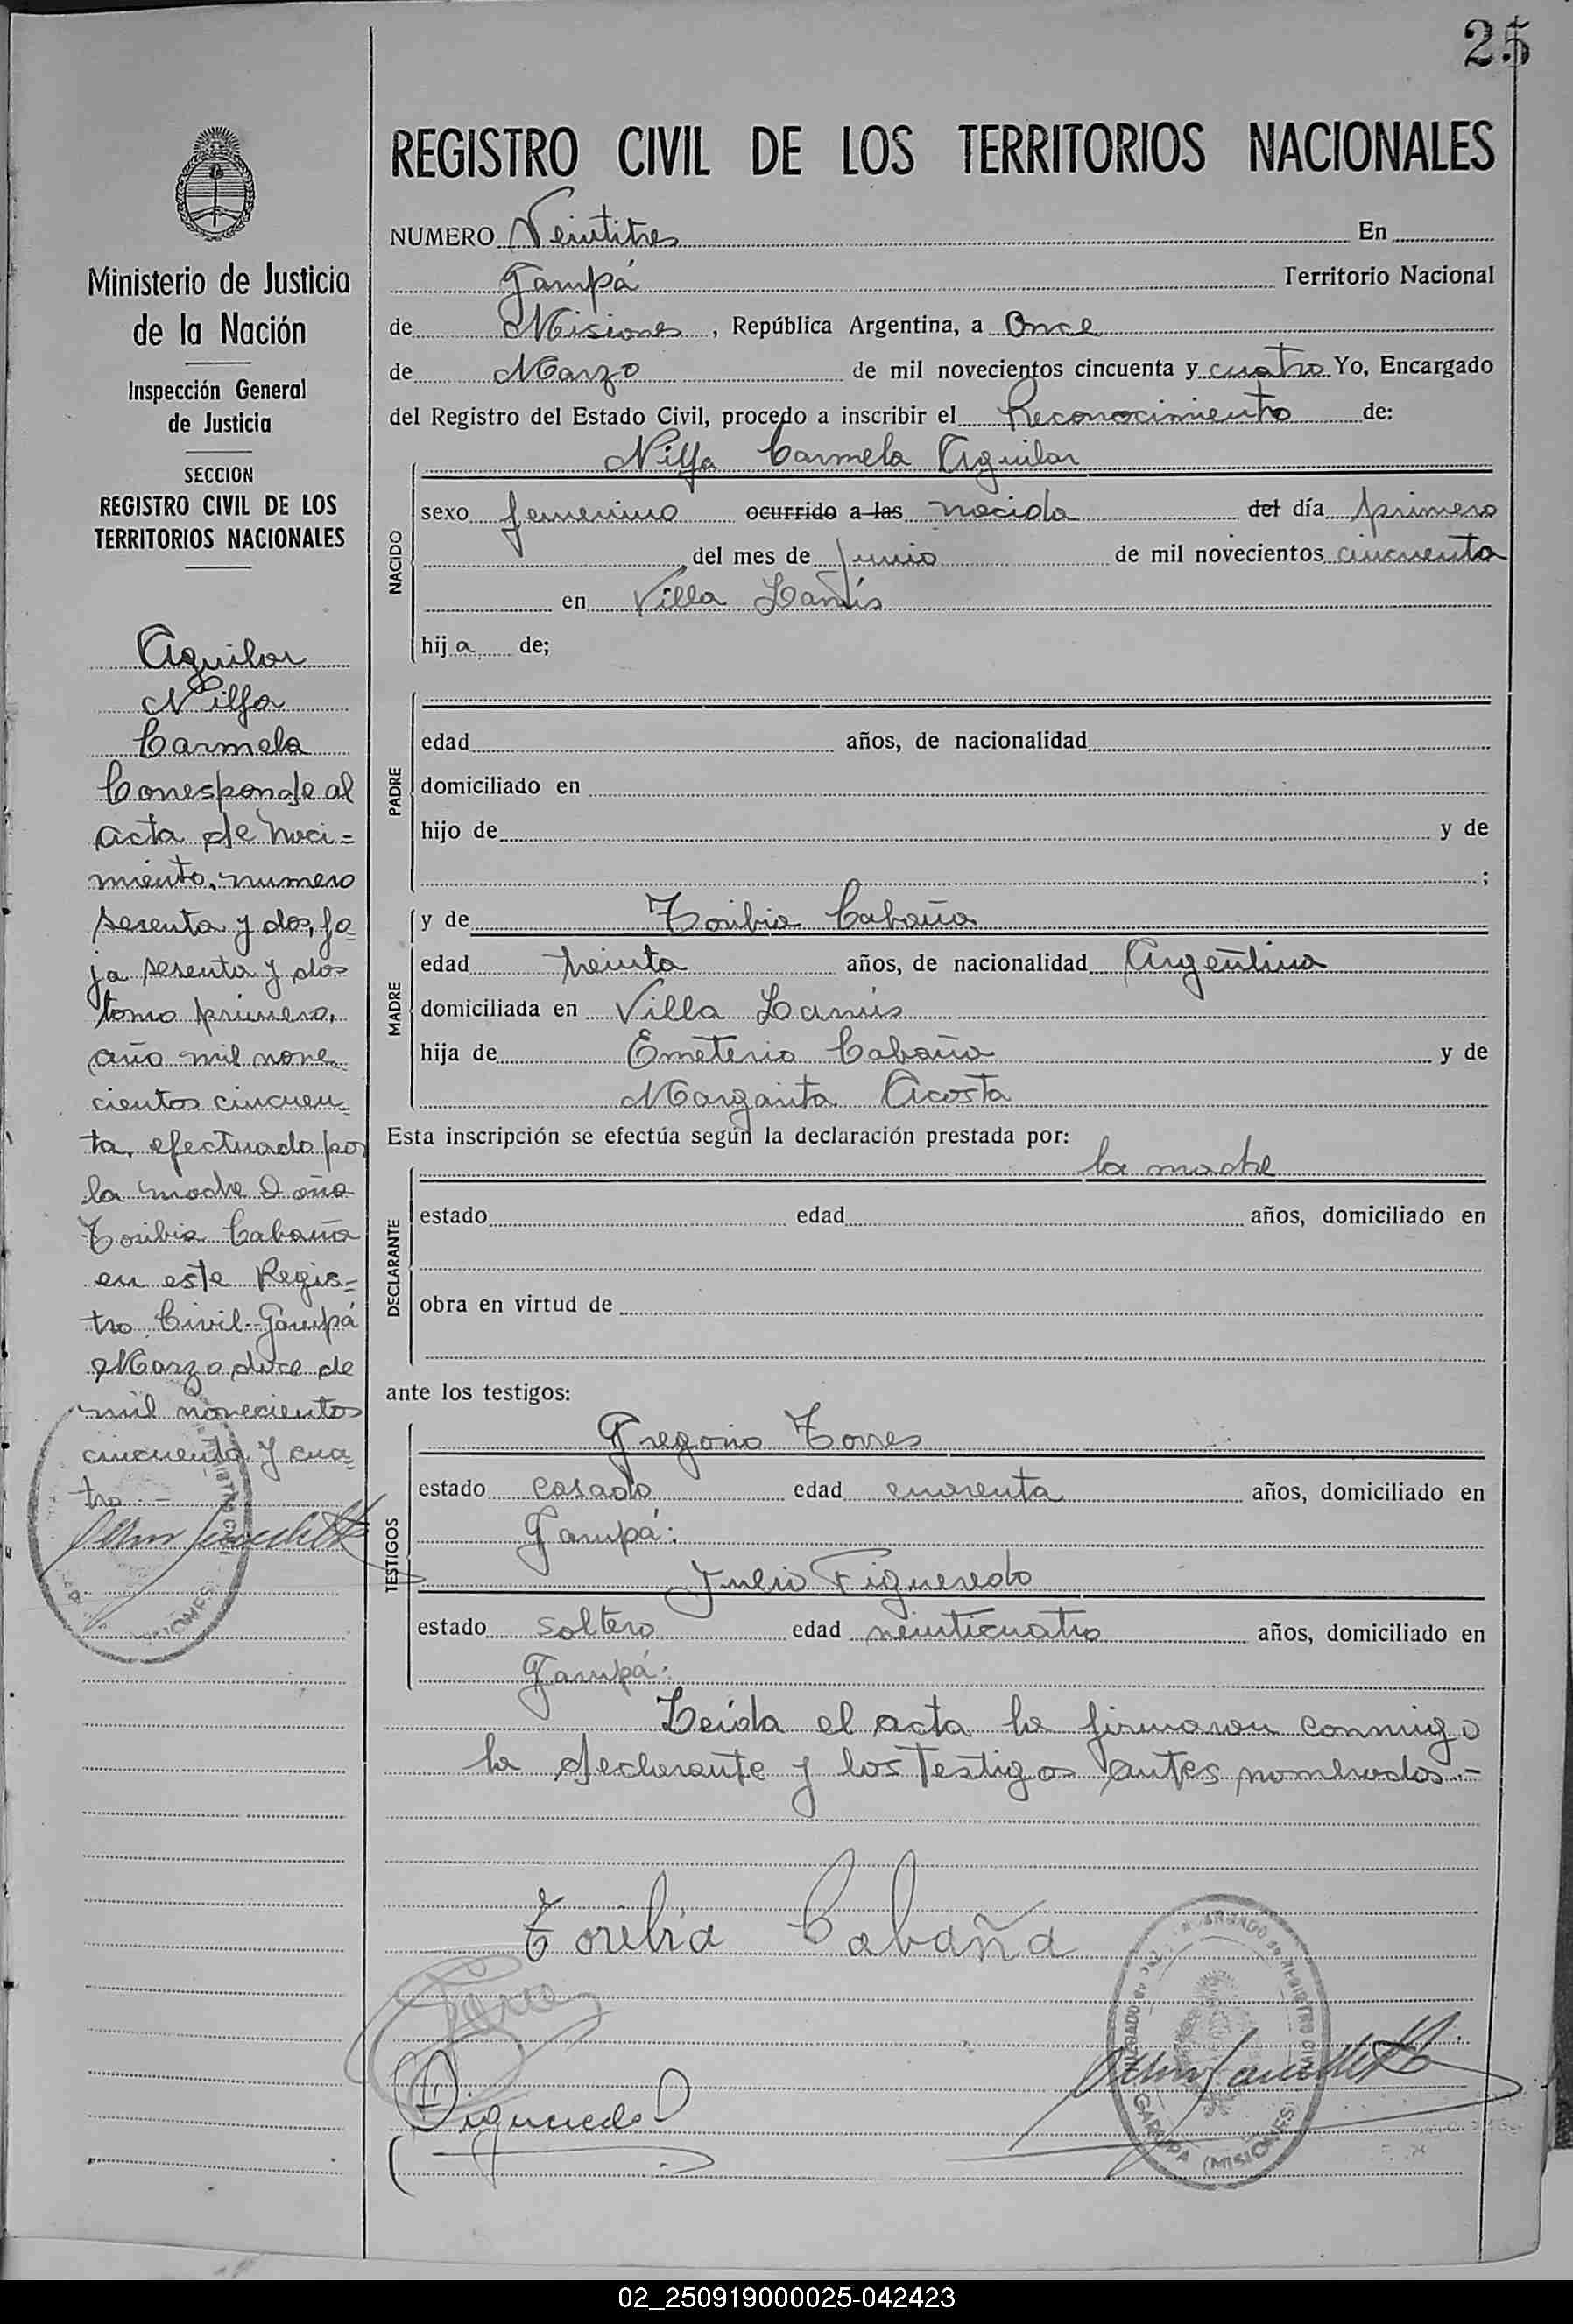 25
REGISTRO CIVIL DE LOS TERRITORIOS NACIONALES
NUMERO Veintitres En
Garupá Territorio Nacional
de Misiones, República Argentina, a Once
de Marzo de mil novecientos cincuenta y cuatro Yo, Encargado
del Registro del Estado Civil, procedo a inscribir el Reconocimiento de:
Nilfa Carmela Aguilar
NACIDO
sexo femenino ocurrido a las nacida del día primero
del mes de Junio de mil novecientos cincuenta
en Villa Lanús
hija de;
PADRE
edad años, de nacionalidad
domiciliado en
hijo de y de
;
MADRE
y de Toribia Cabaña
edad treinta años, de nacionalidad Argentina
domiciliada en Villa Lanús
hija de Emeterio Cabaña y de
Margarita Acosta
Esta inscripción se efectúa según la declaración prestada por:
la madre
DECLARANTE
estado edad años, domiciliado en
obra en virtud de
ante los testigos:
TESTIGOS
Gregorio Torres
estado casado edad cuarenta años, domiciliado en
Garupá.
Julio Figueredo
estado soltero edad veinticuatro años, domiciliado en
Garupá.
Leída el acta la firmaron conmigo
la declarante y los testigos antes nombrados.-
Toribia Cabaña
Torres
Figueredo
JUZGADO de PAZ ENCARGADO de REGISTRO CIVIL
GARUPA (MISIONES)
Ministerio de Justicia
de la Nación
Inspección General
de Justicia
SECCION
REGISTRO CIVIL DE LOS
TERRITORIOS NACIONALES
Aguilar
Nilfa
Carmela
Corresponde al
acta de naci=
miento, numero
sesenta y dos, fo
ja sesenta y dos
tomo primero,
año mil nove
cientos cincuen
ta, efectuado por
la madre Doña
Toribia Cabaña
en este Regis=
tro Civil.- Garupá
Marzo doce de
mil novecientos
cincuenta y cua
tro.-
MISIONES
02_250919000025-042423